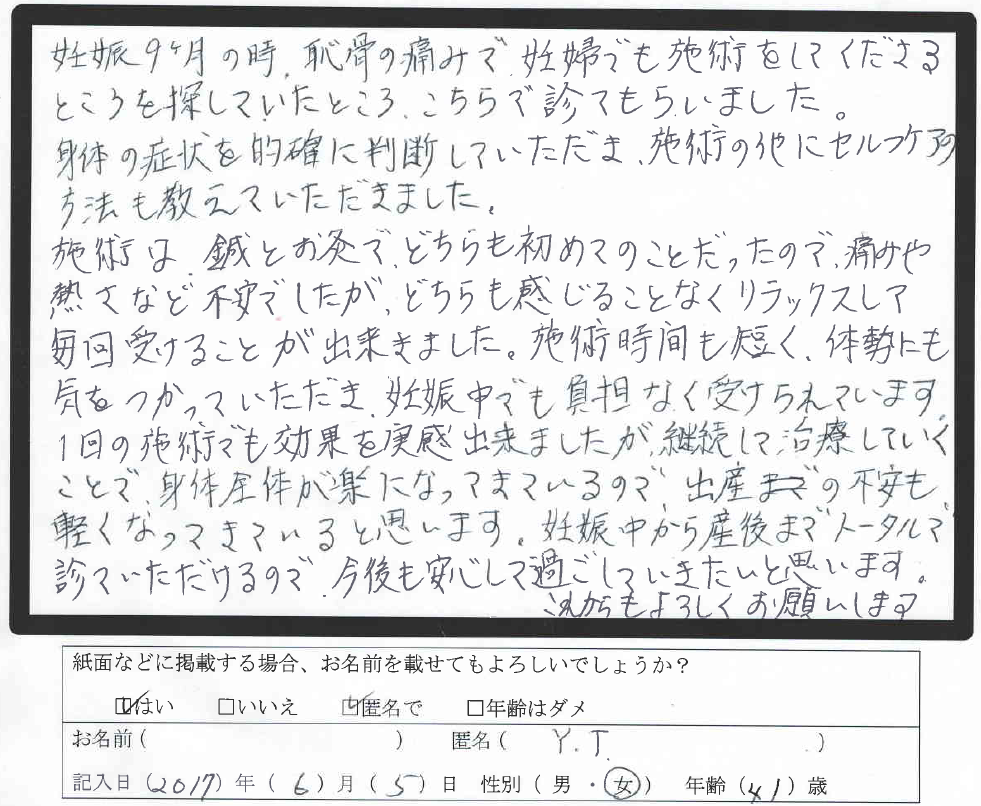 妊娠9ヶ月の時、恥骨の痛みで、妊婦でも施術をしてくださる
ところを探していたところ、こちらで診てもらいました。
身体の症状を的確に判断していただき、施術の他にセルフケアの
方法も教えていただきました。
施術は、鍼とお灸で、どちらも初めてのことだったので、痛みや
熱さなど不安でしたが、どちらも感じることなくリラックスして
毎回受けることが出来きました。施術時間も短く、体勢にも
気をつかっていただき、妊娠中でも負担なく受けられています。
1回の施術でも効果を実感出来ましたが、継続して治療していく
ことで、身体全体が楽になってきているので、出産までの不安も
軽くなってきていると思います。妊娠中から産後までトータルで
診ていただけるので、今後も安心して過ごしていきたいと思います。
これからもよろしくお願いします
紙面などに掲載する場合、お名前を載せてもよろしいでしょうか？
☑はい □いいえ ☑匿名で □年齢はダメ
お名前( ) 匿名( Y.T. )
記入日(2017)年(6)月(5)日 性別(男・女) 年齢(41)歳